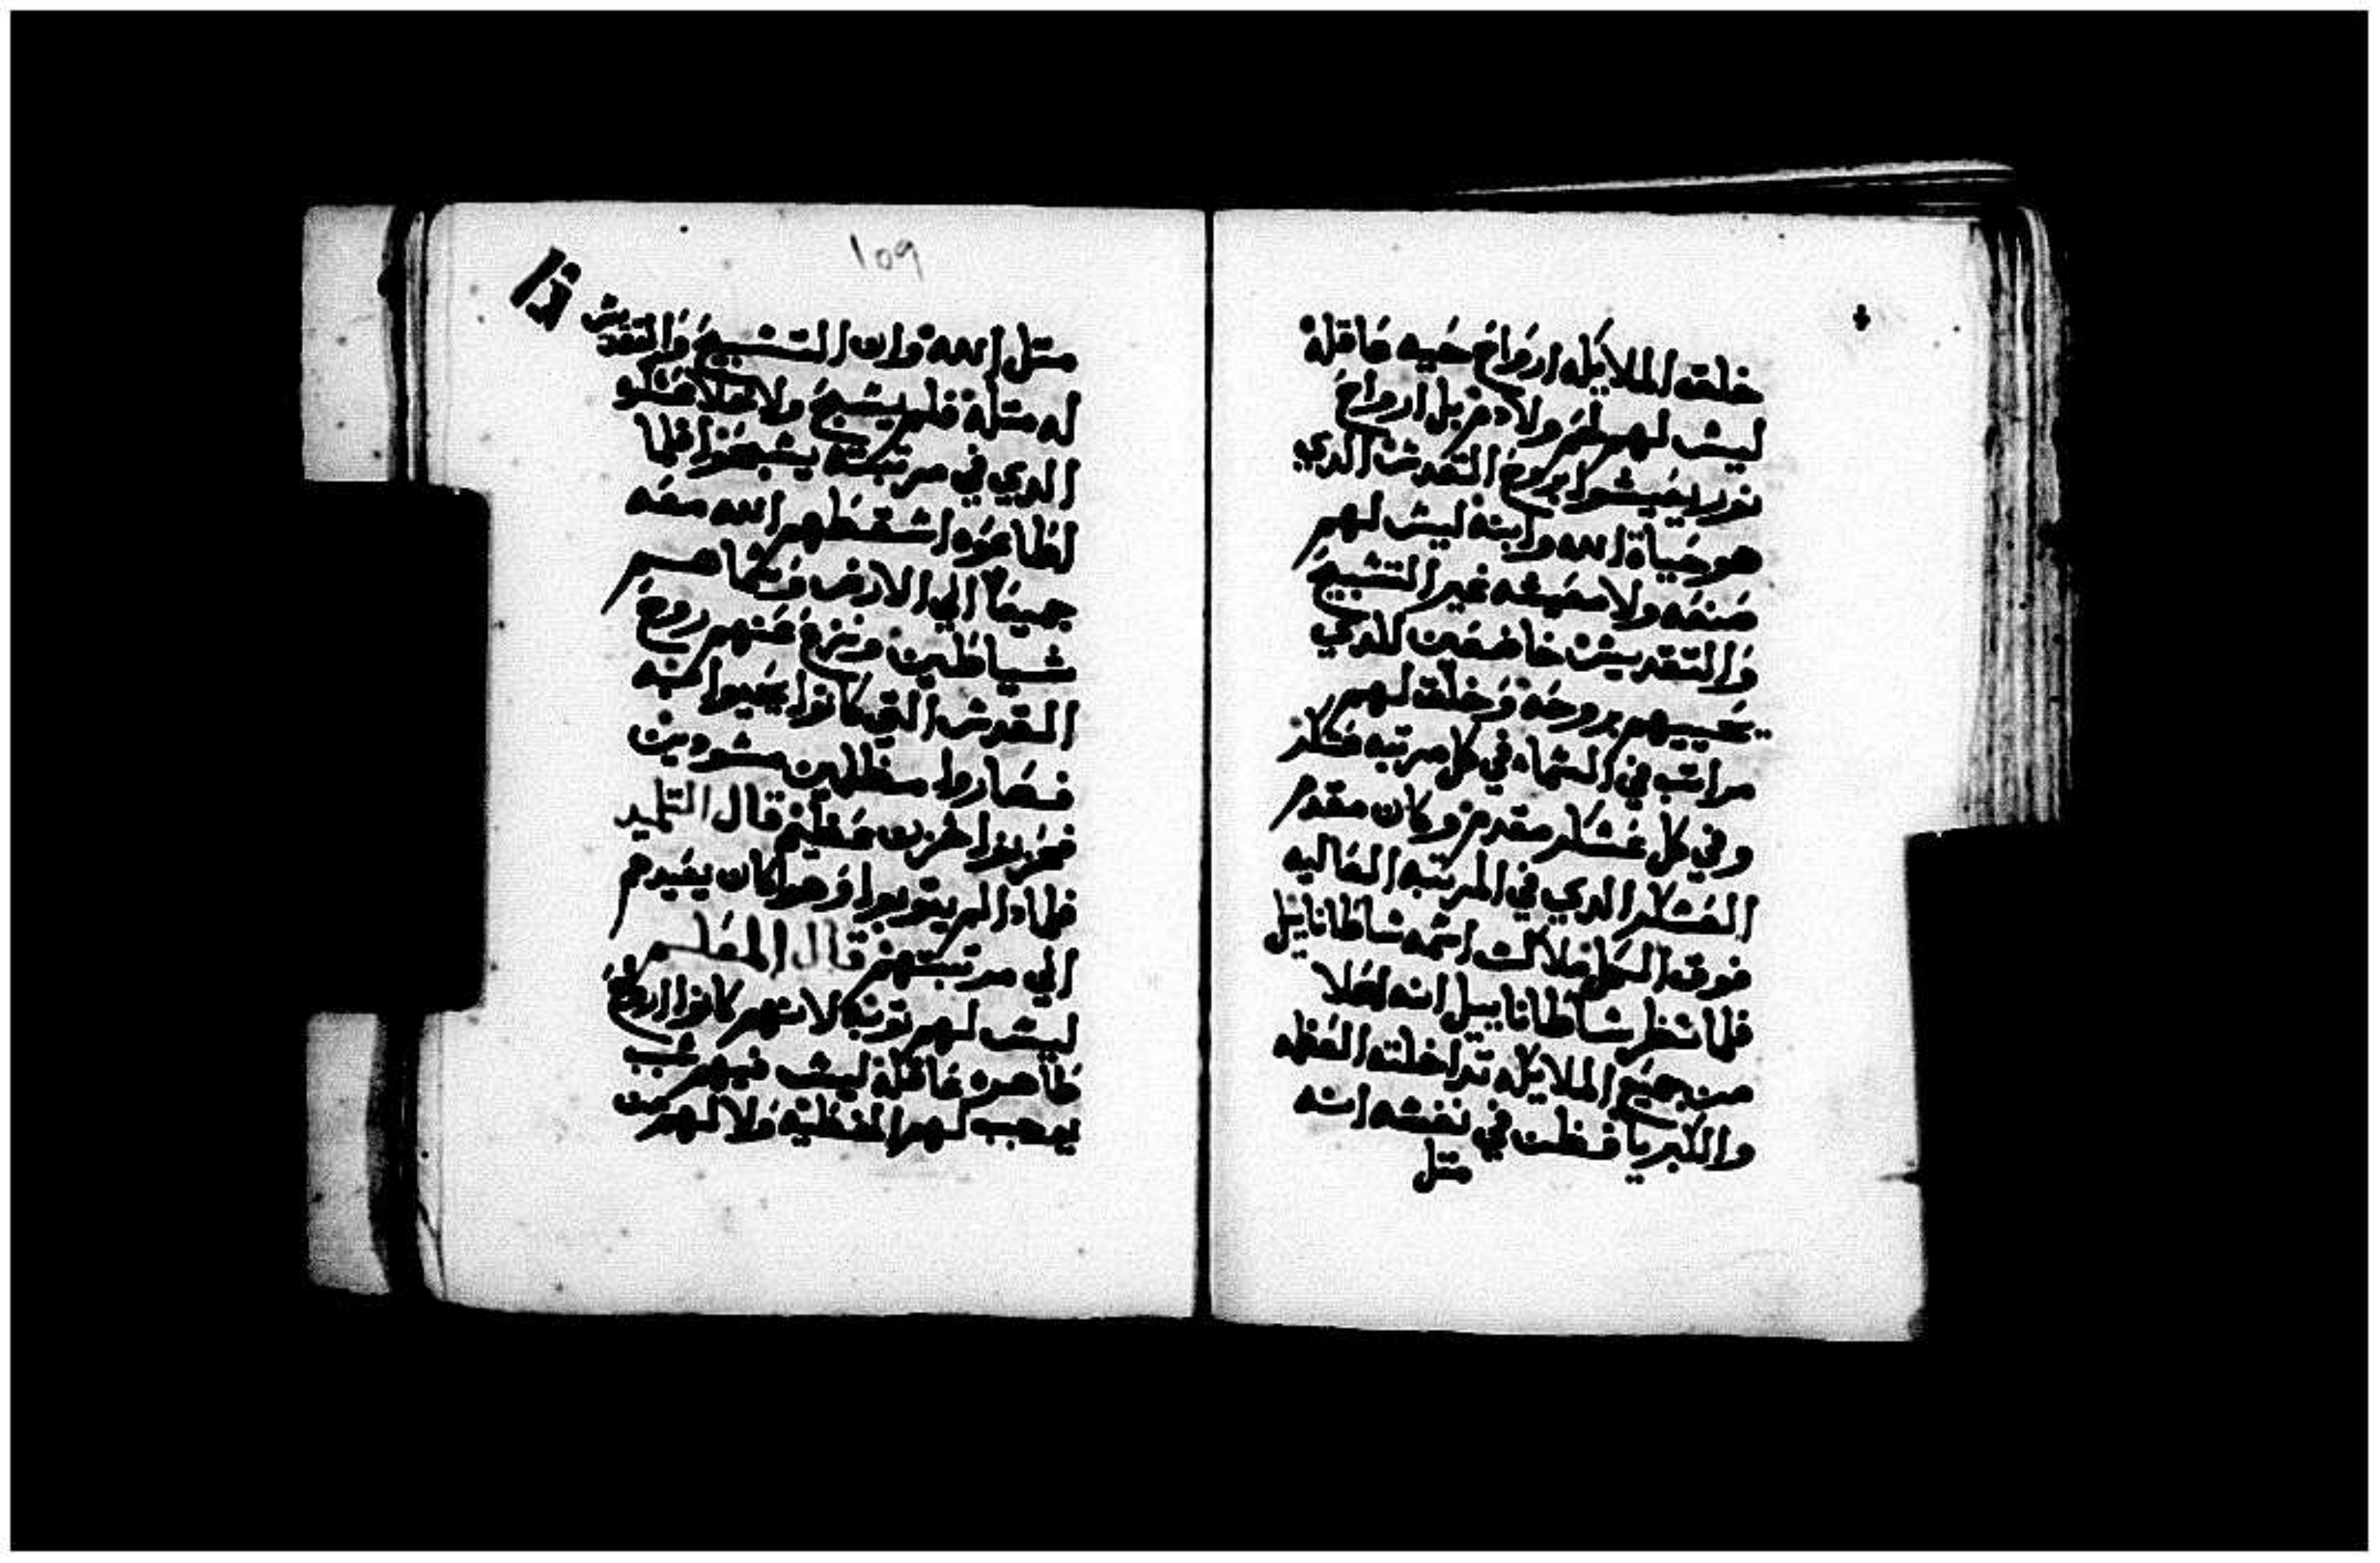 خلقه الملايكه ارواح حيه عاقله
ليش لهم لحم ولا دم بل ارواح
نورا يعيشوا بروح القدش الدي
هو حياة الله وابنه ليش لهم
صنعه ولا معيشه غير التشبيح
والتقديش خاضعين للدي
يحييهم بروحه وخلق لهم
مراتب في الشماء في كل مرتبه عشكر
وفي كل عشكر مقدم وكان مقدم
العشكر الدي في المرتبه العاليه
فوق الكل ملاك اشمه شاطانايل
فلما نظر شاطاناييل انه اعلا
من جميع الملايكه تداخلته العظمه
والكبريا فظن في نفشه انه
متل
١٥٩
متل الله وان التشبيح والتقديش
له متله فلم يشبح ولا خلا عشكره
الدي في مرتبته يشبحوا فلما
اطاعوه اشقطهم الله معه
جميعا الي الارض وشماهم
شياطين ونزع عنهم روح
القدش التي كانوا يحيوا به
فصاروا مظلمين مشودين
فحزنوا حزن عظيم قال التلميد
فلمادا لم يتوبوا وهو كان يعيدهم
الي مرتبتهم قال المعلم
ليش لهم توبه لانهم كانوا ارواح
طاهره عاقله ليش فيهم شبب
يوجب لهم الخطيه ولا لهم من